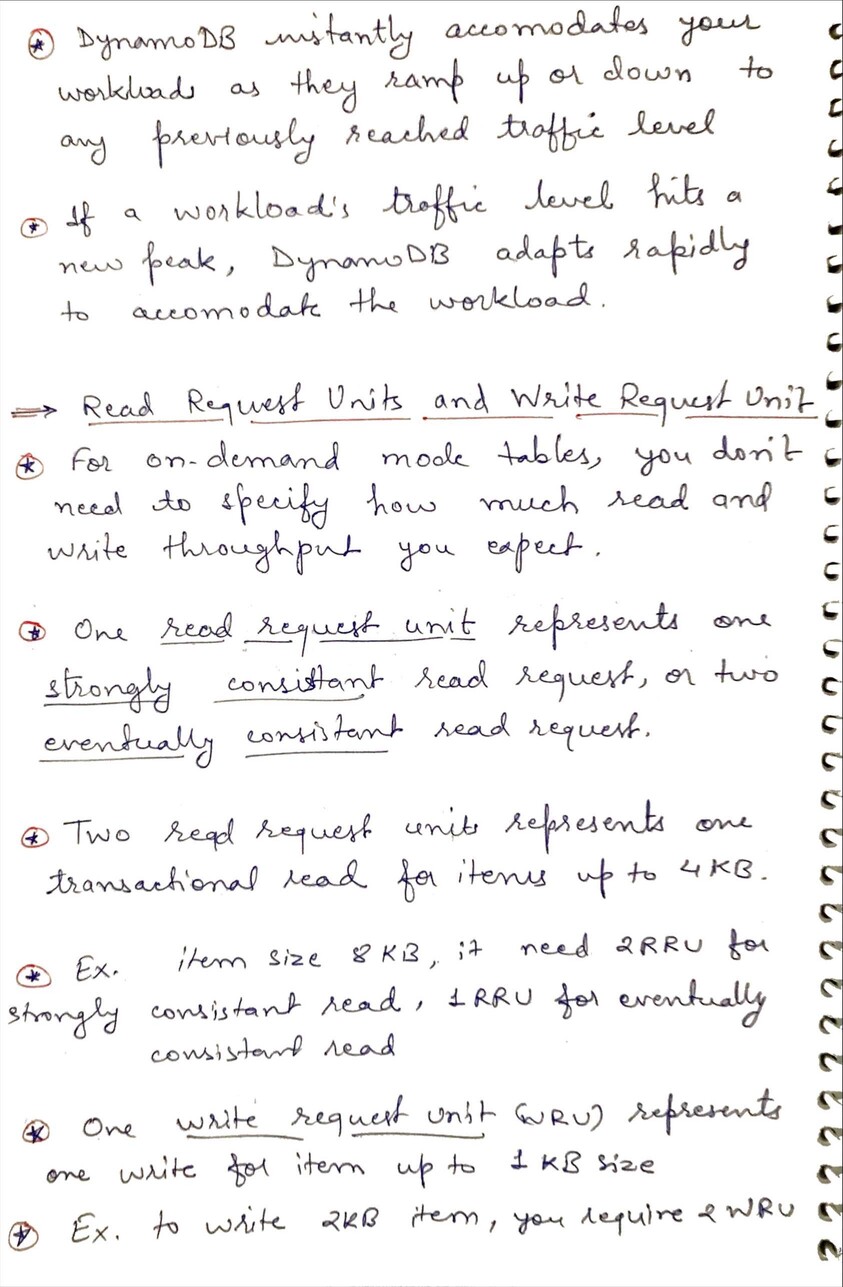 DynamoDB instantly accomodates your
workloads as they ramp up or down to
any previously reached traffic level
If a workload's traffic level hits a
new peak, DynamoDB adapts rapidly
to accomodate the workload.
⇒ Read Request Units and Write Request Unit
For on-demand mode tables, you don't
need to specify how much read and
write throughput you expect.
One read request unit represents one
strongly consistant read request, or two
eventually consistant read request.
Two read request units represents one
transactional read for items up to 4KB.
Ex. item size 8KB, it need 2RRU for
strongly consistant read, 1RRU for eventually
consistant read
One write request unit (WRU) represents
one write for item up to 1KB size
Ex. to write 2KB item, you require 2 WRU